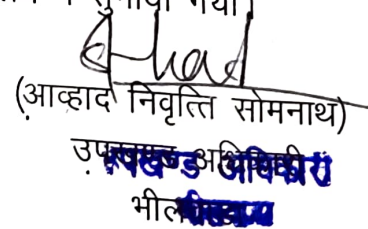 सुनाया गया।
(आव्हाद निवृत्ति सोमनाथ)
उपखण्ड अधिकारी